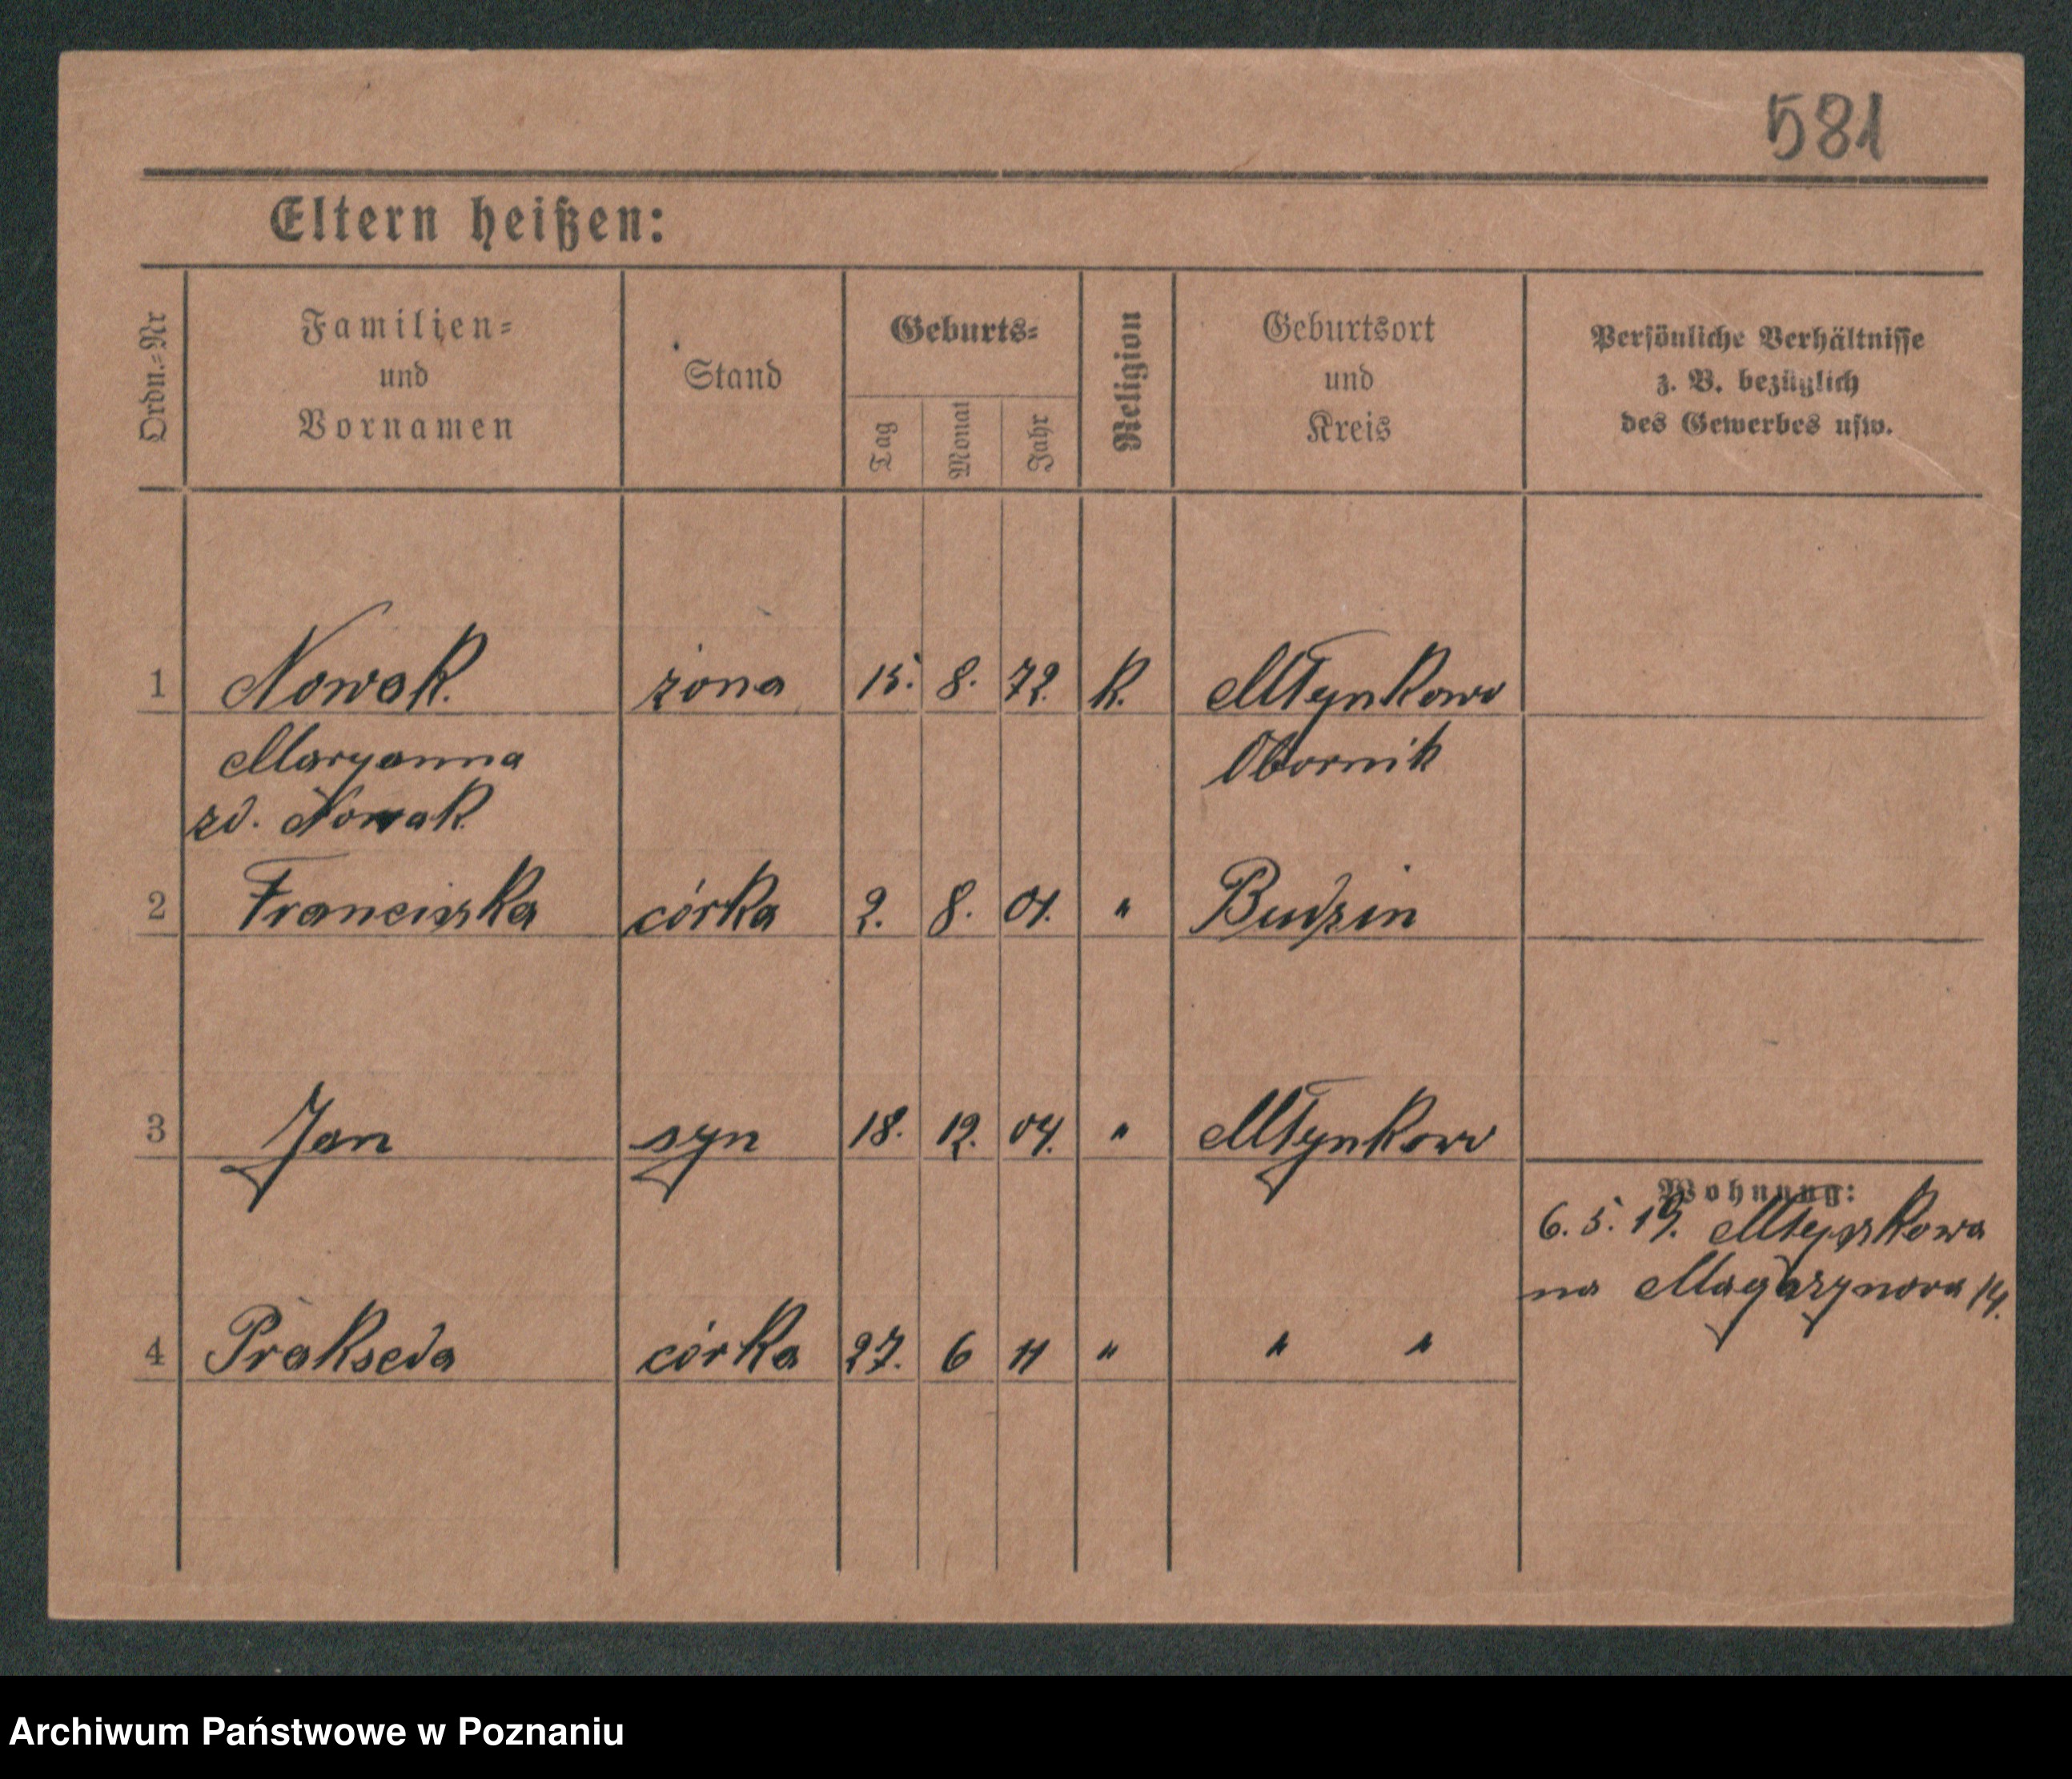 581
Eltern heißen:
Ordn.=Nr
Familien=
und
Vornamen
Stand
Geburts=
Tag
Monat
Jahr
Religion
Geburtsort
und
Kreis
Persönliche Verhältnisse
z. B. bezüglich
des Gewerbes usw.
1 Nowak żona 15. 8. 72. k. Młynkowo
Maryanna Obornik
zd. Nowak
2 Franciszka córka 2. 8. 01. " Budzin
3 Jan syn 18. 12. 04. " Młynkowo
Wohnung:
6. 5. 19.
na Magazynowa 14.
4 Prakseda córka 27. 6 11 " " "
Archiwum Państwowe w Poznaniu